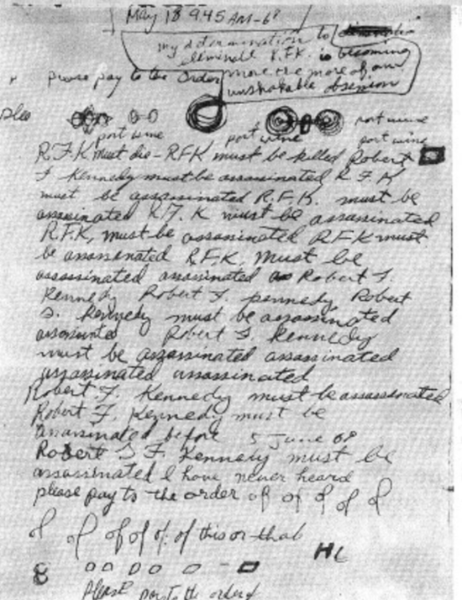 May 18 9.45 AM-68
my determination to
eliminate R.F.K. is becoming
more the more of an
unshakable obsession
please pay to the order
port wine
port wine port wine port wine
R.F.K must die - RFK must be killed Robert
F Kennedy must be assassinated R F K
must be assassinated R.F.K. must be
assassinated R.F.K must be assassinated
R.F.K. must be assassinated RFK must
be assassinated R.F.K. must be
assassinated assassinated Robert F.
Kennedy Robert F. pennedy Robert
F. Kennedy must be assassinated
assassinated Robert F. Kennedy
must be assassinated assassinated
assassinated assassinated
Robert F. Kennedy must be assassinated
Robert F. Kennedy must be
assassinated before 5 June 68
Robert F. Kennedy must be
assassinated I have never heard
please pay to the order of of of of of
of of of of of of this or that
please pay to the order of